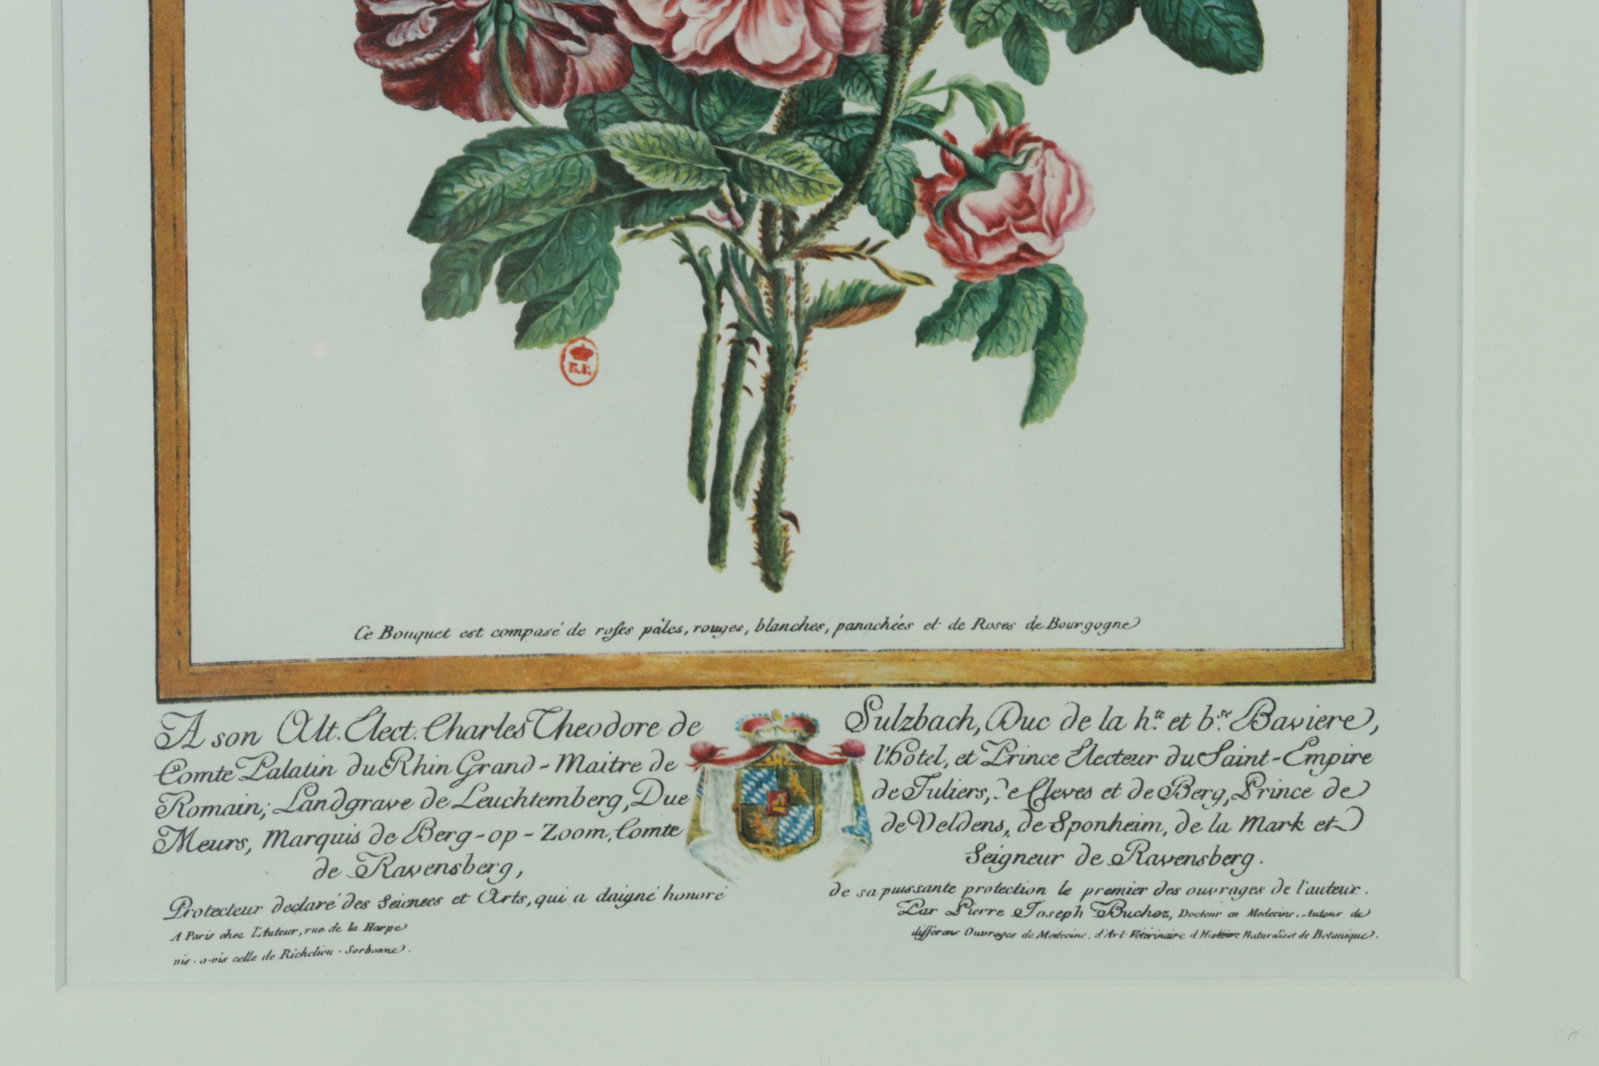 B.R.
Ce Bouquet est composé de roses pâles, rouges, blanches, panachées et de Roses de Bourgogne
A son Alt. Elect. Charles Theodore de Sulzbach, Duc de la h.te et b.se Baviere,
Comte Palatin du Rhin Grand-Maitre de l'hôtel, et Prince Electeur du Saint-Empire
Romain, Landgrave de Leuchtemberg, Due de Juliers, de Cleves et de Berg, Prince de
Meurs, Marquis de Berg-op-Zoom, Comte de Veldens, de Sponheim, de la Mark et
de Ravensberg, Seigneur de Ravensberg.
Protecteur declaré des Seiences et Arts, qui a daigné honoré de sa puissante protection le premier des ouvrages de l'auteur.
Par Pierre Joseph Buchoz, Docteur en Medecine, Auteur de
A Paris chez l'Auteur, rue de la Harpe differens Ouvrages de Medecine, d'Art Vétérinaire d'Histoire Naturelle et de Botanique.
vis-a-vis celle de Richelieu-Sorbonne.